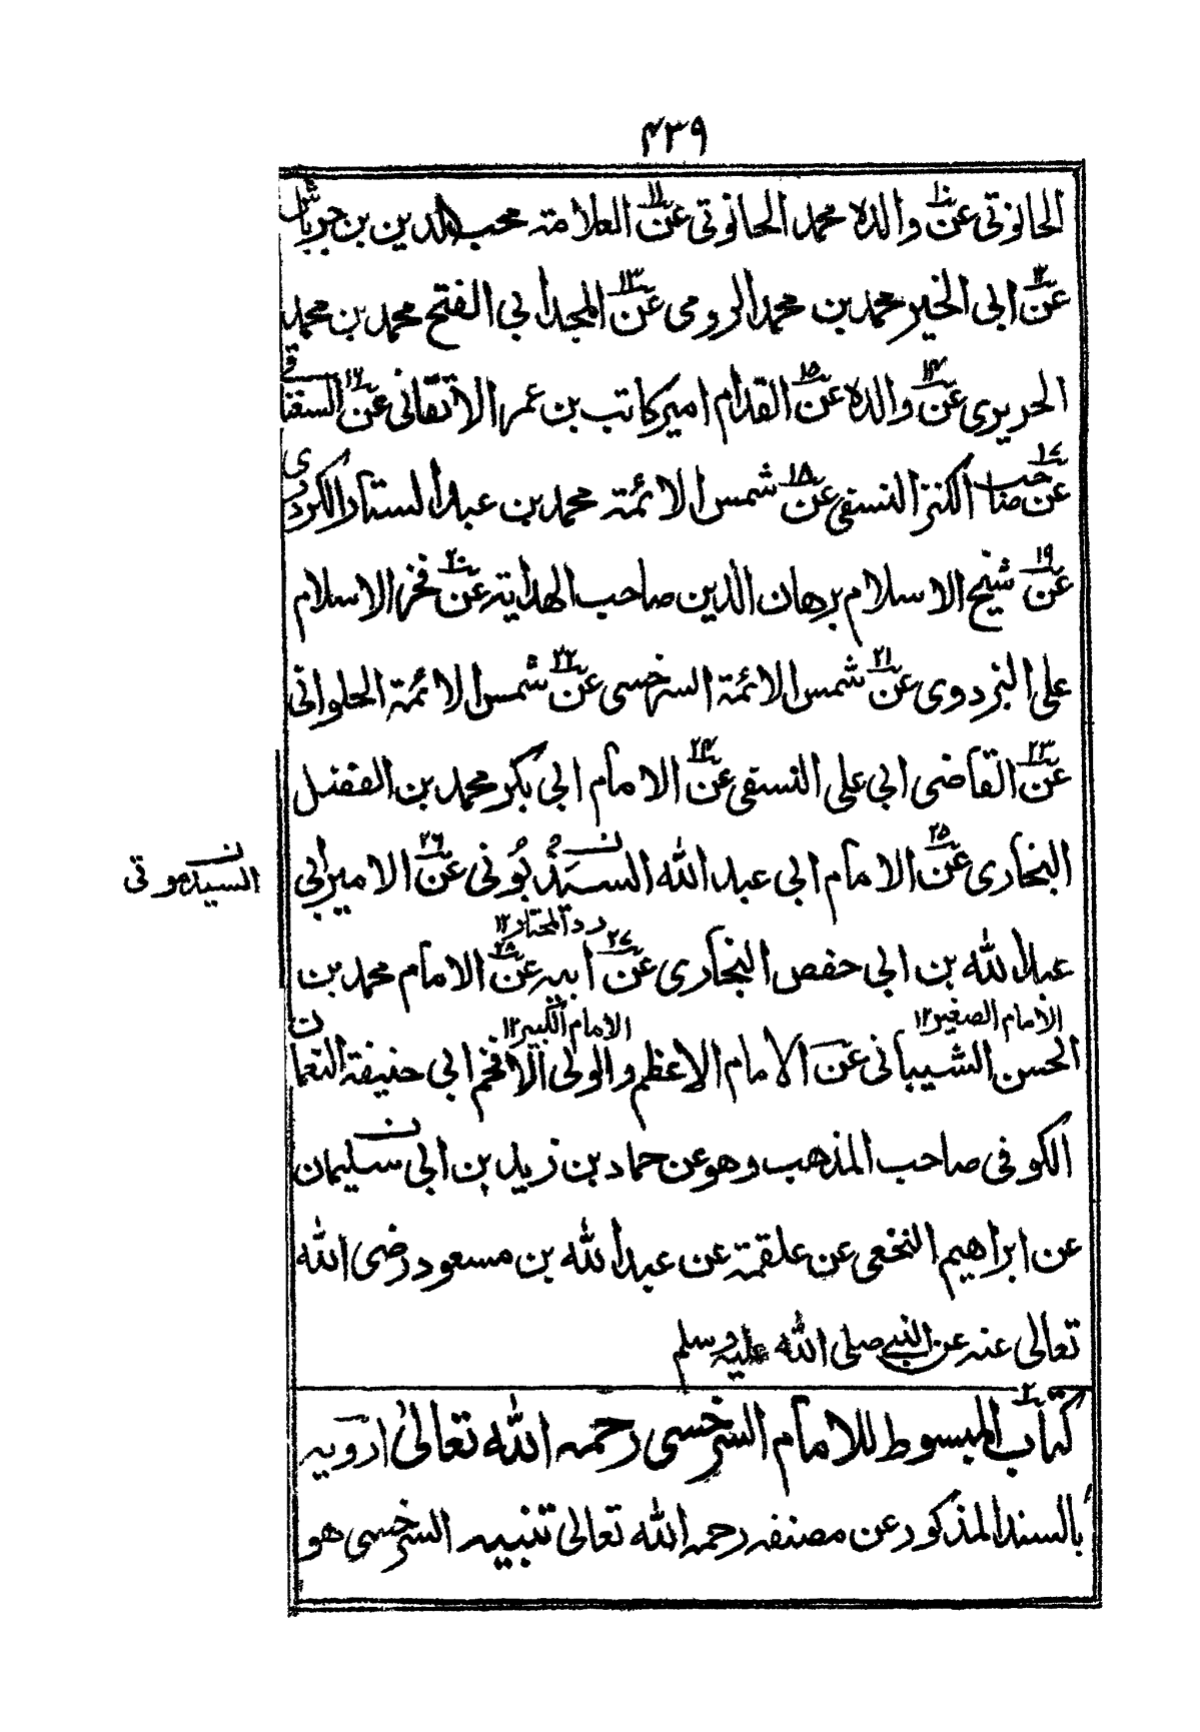 ۴۳۹
الحانوتی عن۱۰ والدہ محمد الحانوتی عن۱۱ العلامۃ محب الدین بن جرباش
عن۱۲ ابی الخیر محمد بن محمد الرومی عن۱۳ المجد ابی الفتح محمد بن محمد
الحریری عن۱۴ والدہ عن۱۵ القوام امیر کاتب بن عمر الاتقانی عن۱۶ السغناقی
عن۱۷ صاحب الکنز النسفی عن۱۸ شمس الائمۃ محمد بن عبد الستار الکردری
عن۱۹ شیخ الاسلام برھان الدین صاحب الھدایۃ عن۲۰ فخر الاسلام
علی البزدوی عن۲۱ شمس الائمۃ السرخسی عن۲۲ شمس الائمۃ الحلوانی
عن۲۳ القاضی ابی علی النسفی عن۲۴ الامام ابی بکر محمد بن الفضل
البخاری عن۲۵ الامام ابی عبد اللّٰہ السیذبونی عن۲۶ الامیر ابی
ن السیدموتی
رد المحتار۱۲
عبد اللّٰہ بن ابی حفص البخاری عن۲۷ ابیہ عن۲۸ الامام محمد بن
الامام الصغیر۱۲ الامام الکبیر۱۲
الحسن الشیبانی عن الامام الاعظم والولی الافخم ابی حنیفۃ النعمان
الکوفی صاحب المذھب وھو عن حماد بن زید بن ابی سلیمان
عن ابراھیم النخعی عن علقمۃ عن عبد اللّٰہ بن مسعود رضی اللّٰہ
تعالی عنہ عن النبی صلی اللّٰہ علیہ وسلم
۲ کتاب المبسوط للامام السرخسی رحمہ اللّٰہ تعالیٰ ارویہ
بالسند المذکور عن مصنفہ رحمہ اللّٰہ تعالی تنبیہ السرخسی ھو